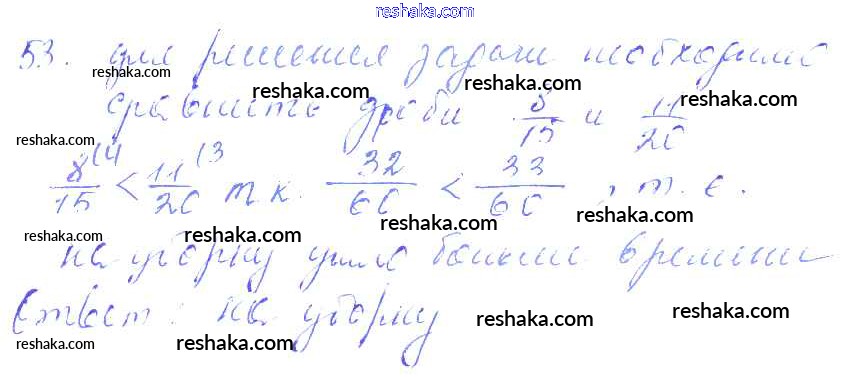 www.reshaka.com
53. для решения задачи необходимо
сравнить дроби 8/15 и 11/20
8/15 (4 < 11/20 (3 т.к. 32/60 < 33/60 , т.е.
на уборку ушло больше времени
Ответ: на уборку
reshaka.com
reshaka.com
reshaka.com
reshaka.com
reshaka.com
reshaka.com
reshaka.com
reshaka.com
reshaka.com
reshaka.com
reshaka.com
reshaka.com
reshaka.com